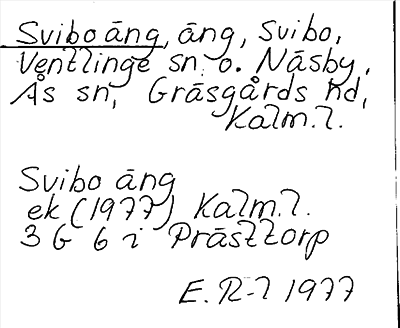 Svibo äng, äng, Svibo,
Ventlinge sn o. Näsby,
Ås sn, Gräsgårds hd,
Kalm.l.
Svibo äng
ek (1977) Kalm.l.
3 G 6 i Prästtorp
E. R-l 1977